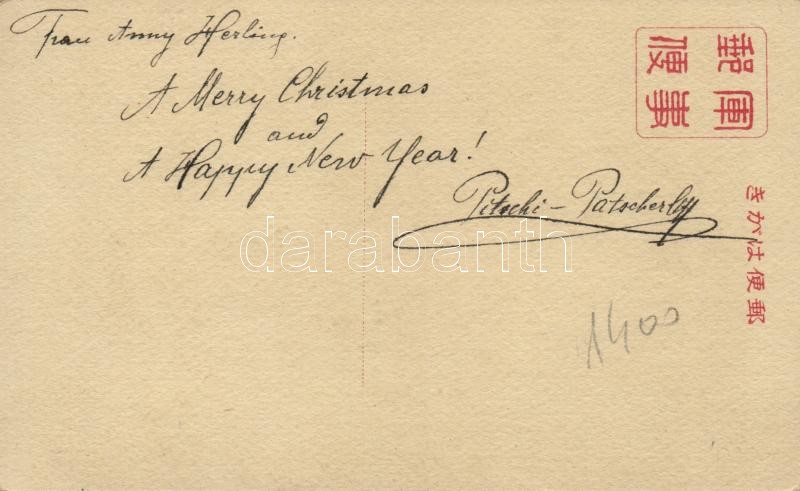 Frau Anny Herling.
A Merry Christmas
and
A Happy New Year!
Pitschi-Patscherlly
軍事
郵便
きがは便郵
darabanth
1400